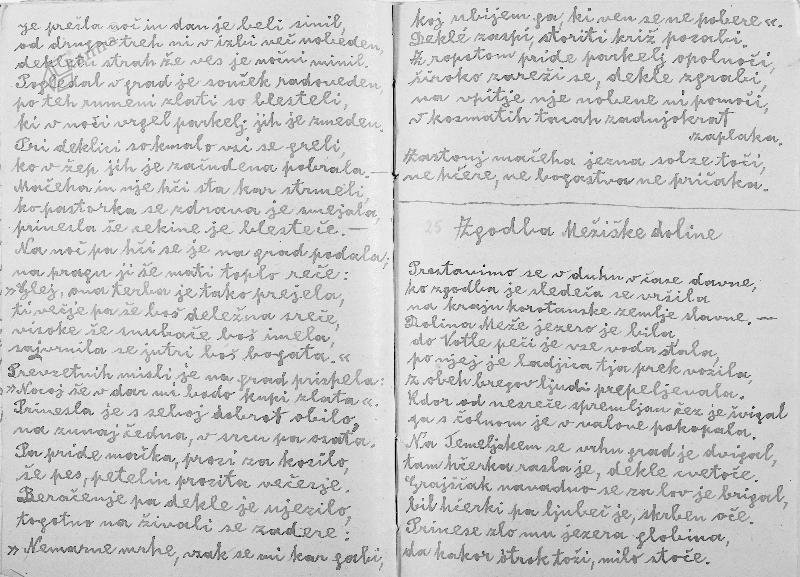 je prešla noč in dan je beli sinil,
od drugo treh ni v izbi več nobeden,
deklетu strah že ves je nočni minil.
Pogledal v grad je sonček radoveden,
po teh rumeni zlati so blesteli,
ki v noči vrgel parkelj jih je zmeden.
Pri deklici so kmalo vsi se greli,
ko v žep jih je začudena pobrala. —
Mačeha in nje hči sta kar strmeli,
ko pastorka se zdrava je smejala,
prinesla še cekine je blesteče. —
Na noč pa hči se je na grad podala;
na pragu ji še mati toplo reče:
»Glej, ona terba je tako prejela,
ti večje pa še boš deležna sreče,
visoke še snubače boš imela,
saj vrnila se jutri boš bogata.«
Prevzetnih misli, je na grad prispela:
»Nocoj še v dar mi bodo kupi zlata«.
Prinesla je s seboj dobrot obilo,
na zunaj čedna, v srcu pa osata.
Pa pride mačka, prosi za kosilo,
še pes, petelin prosita večerje.
Beračenje pa dekle je ujezilo,
togotno na živali se zadere:
»Nemarne mrhe, vsak se mi kar gabi,
koj ubijem ga, ki ven se ne pobere«.
Deklé zaspi, storiti križ pozabi.
Z ropotom pride parkelj opolnoči,
široko zareži se, dekle zgrabi,
na vpitje nje nobene ni pomoči,
v kosmatih tacah zadnjokrat
zaplaka.
Zastonj mačeha jezna solze toči,
ne hčere, ne bogastva ne pričaka.
25 Zgodba Mežiške doline
Prestavimo se v duhu v čase davne,
ko zgodba je sledeča se vršila
na kraju korotanske zemlje slavne. —
Dolina Meže jezero je bila,
do Votle peči je vse voda stala,
po njej je ladjica tja prek vozila,
z obeh bregov ljudi prepeljevala.
Kdor od nesreče spremljan čez je švigal
ga s čolnom je v valove pokopala.
Na Temeljskem se vrhu grad je dvigal,
tam hčerka rasla je, dekle cvetoče.
Grajščak navadno se za lov je brigal,
bil hčerki pa ljubeč je, skrben oče.
Prinese zlo mu jezera globina,
da kakor otrok toži, milo stoče.